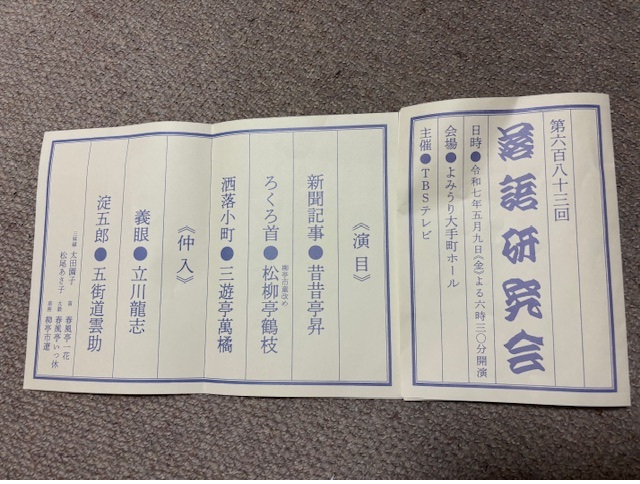 第六百八十三回
落語研究会
日時●令和七年五月九日《金》よる六時三〇分開演
会場●よみうり大手町ホール
主催●TBSテレビ
《演目》
新聞記事●昔昔亭昇
柳亭市童改め
ろくろ首●松柳亭鶴枝
洒落小町●三遊亭萬橘
《仲入》
義眼●立川龍志
淀五郎●五街道雲助
三味線 太田園子
松尾あさ子
笛 春風亭一花
太鼓 春風亭いっ休
前座 柳亭市遼